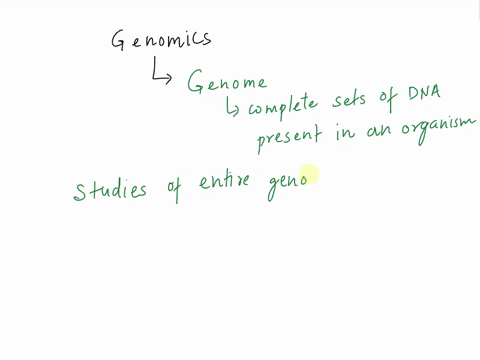 Genomics
Genome
complete sets of DNA
present in an organism
Studies of entire geno